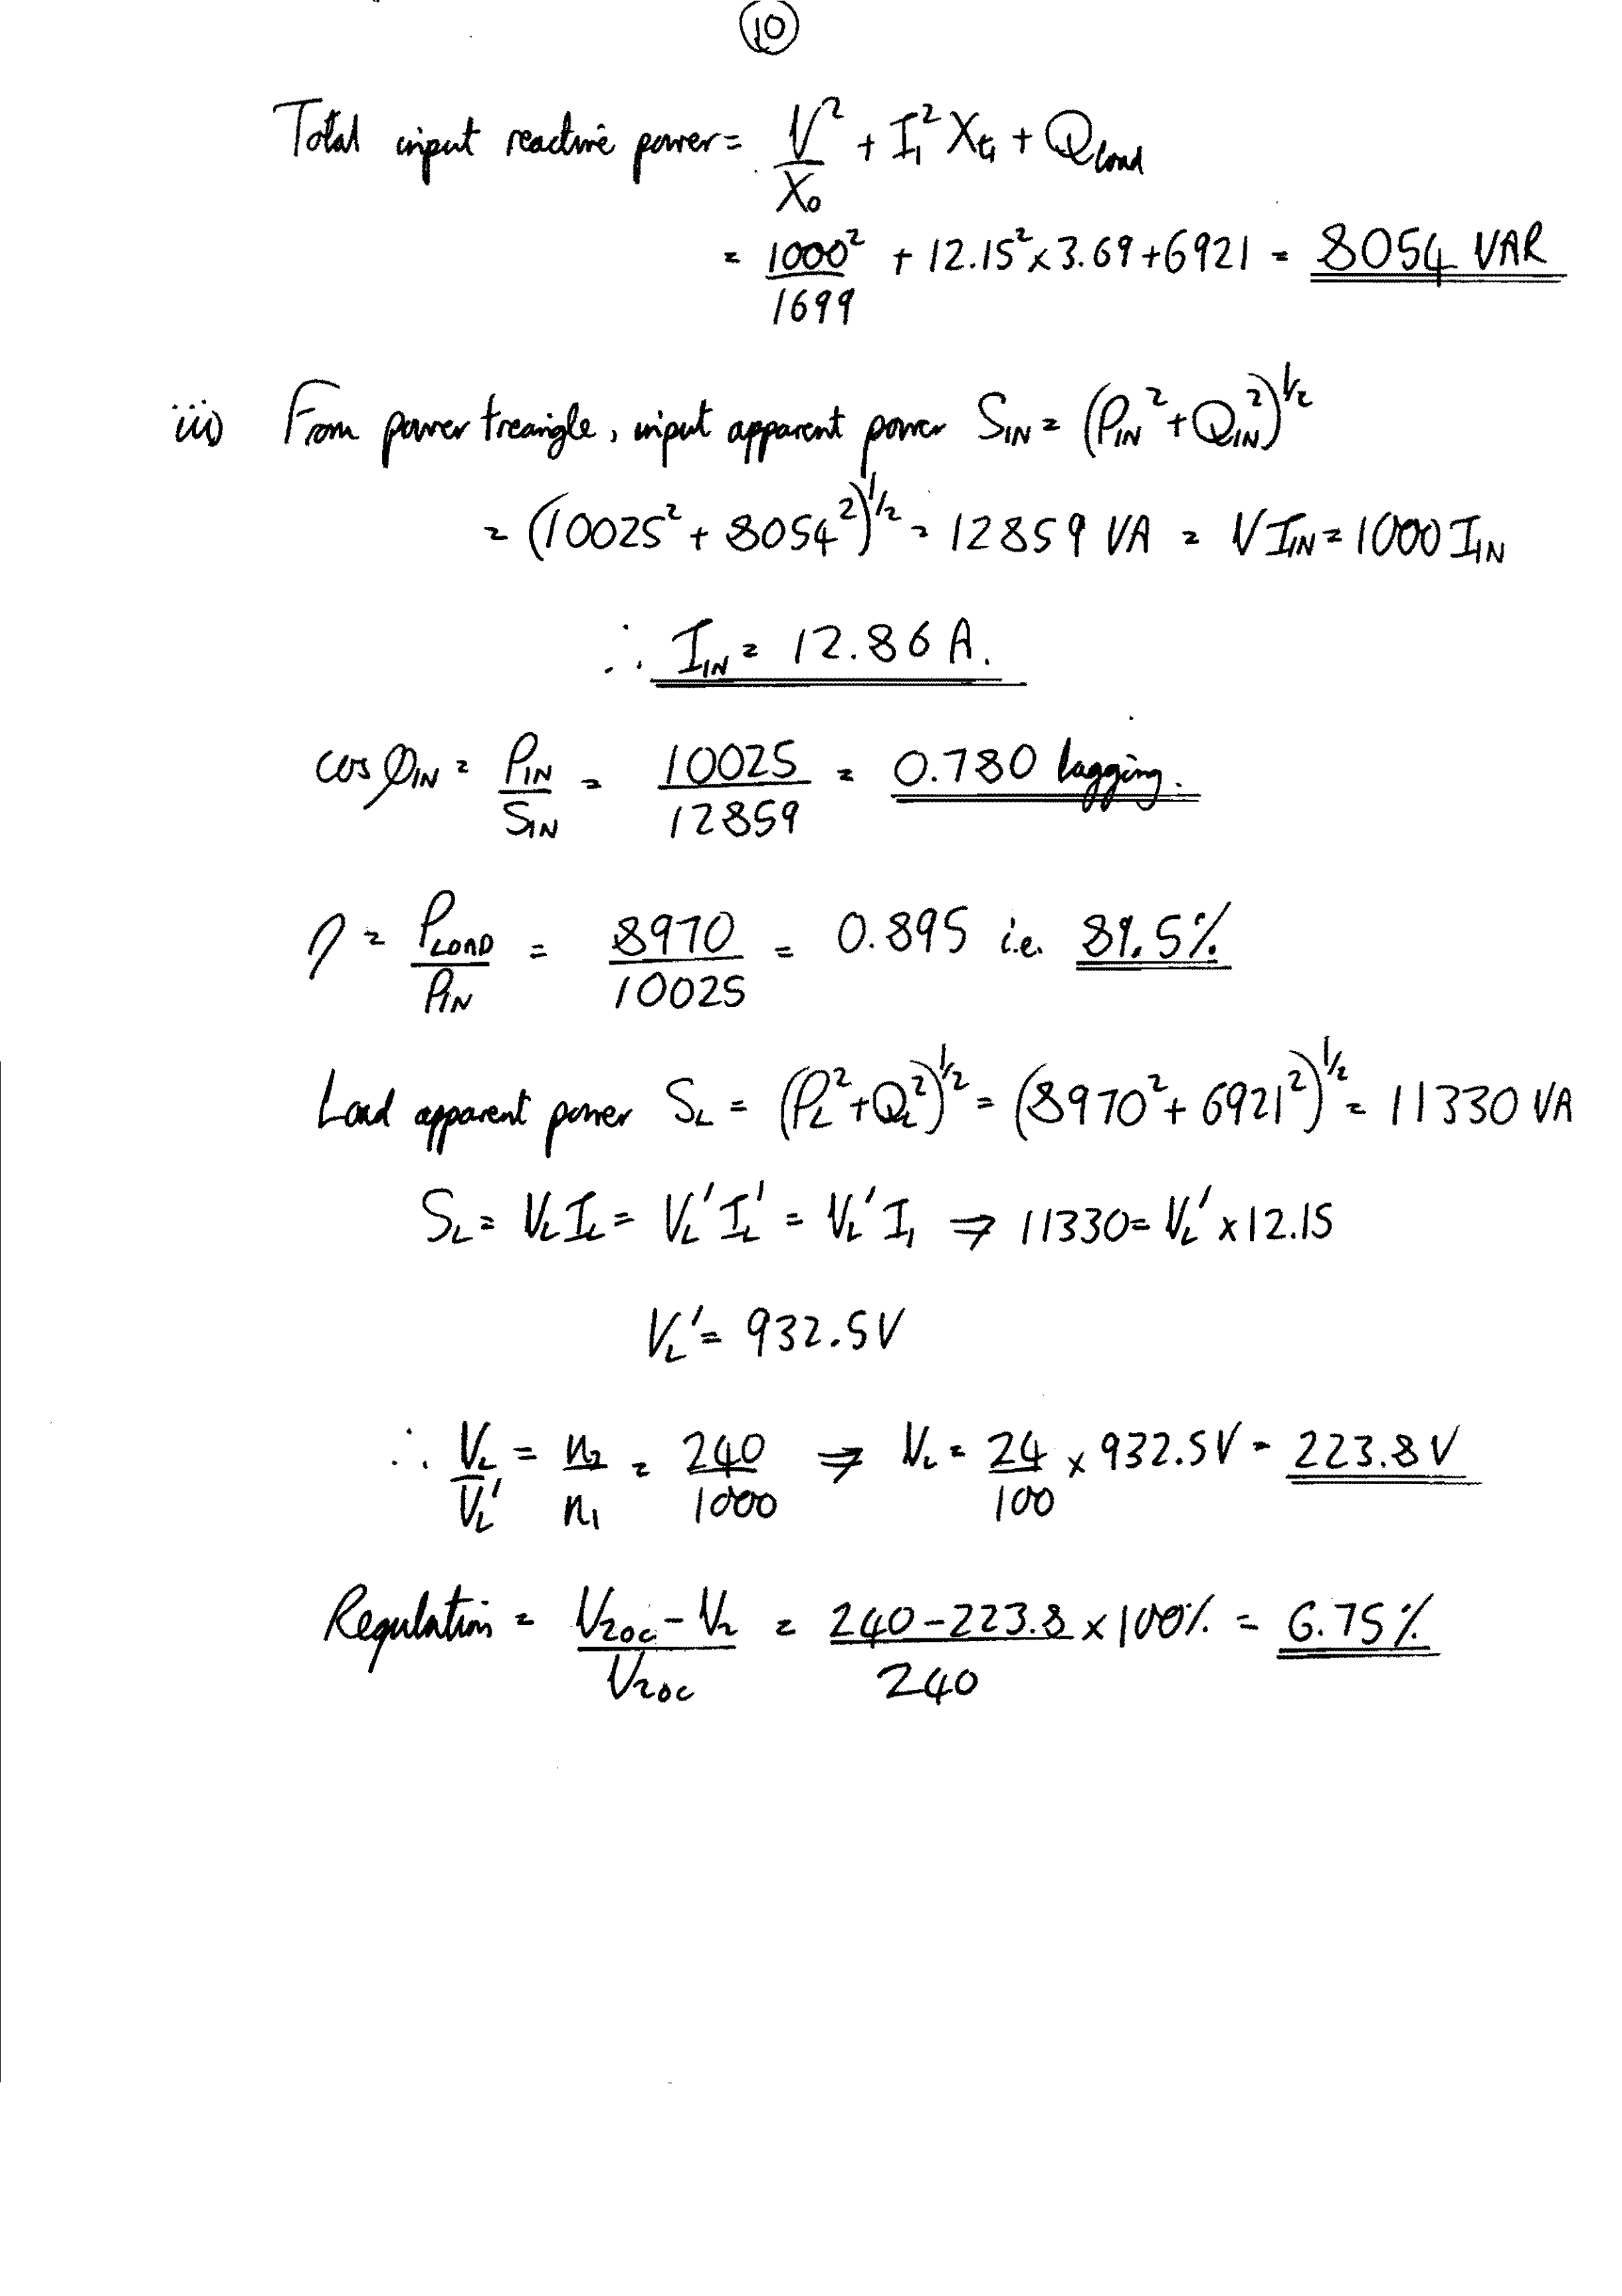 10
Total input reactive power = V²/X₀ + I₁² X_t₁ + Q_load
= 1000²/1699 + 12.15² × 3.69 + 6921 = 8054 VAR
iii) From power treangle, input apparent power S_IN = (P_IN² + Q_IN²)^1/2
= (10025² + 8054²)^1/2 = 12859 VA = V I_IN = 1000 I_IN
∴ I_IN = 12.86 A.
cos φ_IN = P_IN/S_IN = 10025/12859 = 0.780 lagging.
η = P_LOAD/P_IN = 8970/10025 = 0.895 i.e. 89.5%
Load apparent power S_L = (P_L² + Q_L²)^1/2 = (8970² + 6921²)^1/2 = 11330 VA
S_L = V_L I_L = V_L' I_L' = V_L' I₁ ⇒ 11330 = V_L' × 12.15
V_L' = 932.5V
∴ V_L/V_L' = n₂/n₁ = 240/1000 ⇒ V_L = 24/100 × 932.5V = 223.8 V
Regulation = (V₂oc - V₂)/V₂oc = (240 - 223.8)/240 × 100% = 6.75%